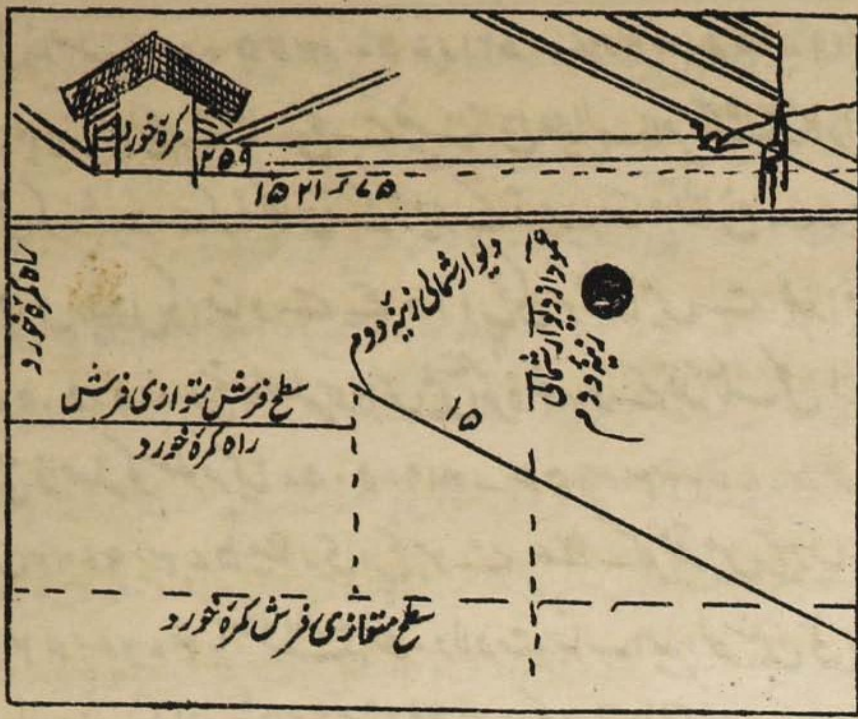 کمرۀ خورد
۲۵۹
۱۵۲۱ء۶۵
راه کمرۀ خورد
دیوار شمالی زینۀ دوم
عمود از دیوار شمالی
زینۀ دوم
سطح فرش متوازی فرش
راه کمرۀ خورد
۱۵
سطح متوازی فرش کمرۀ خورد